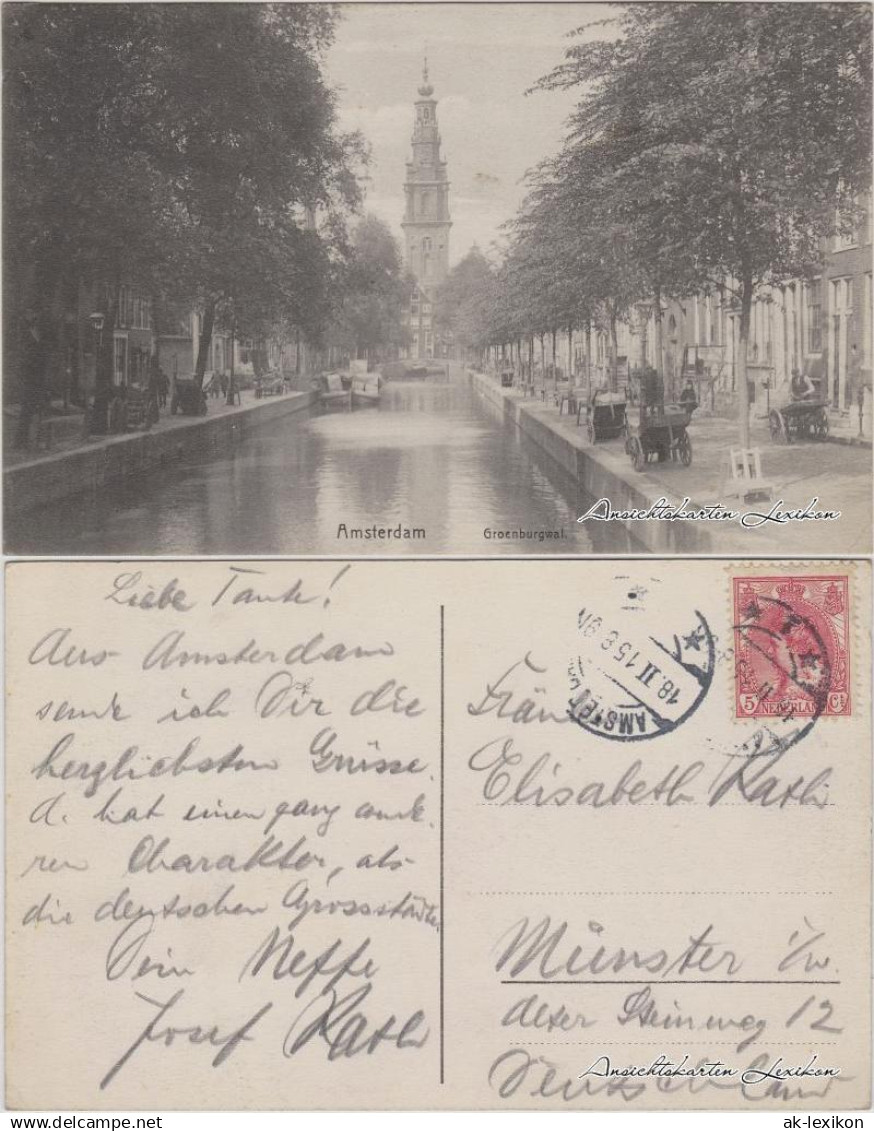 Amsterdam
Groenburgwal.
Ansichtskarten Lexikon
Liebe Tante!
Aus Amsterdam
sende ich Dir die
herzlichsten Grüsse.
A. hat einen ganz ande-
ren Charakter, als
die deutschen Grossstädte.
Dein Neffe
Josef Rath
AMSTER
18.II 15 8
5 Ct
NEDERLAND
Elisabeth Rath
Münster i/w.
Steinweg 12
Deutschland
Ansichtskarten Lexikon
ak-lexikon